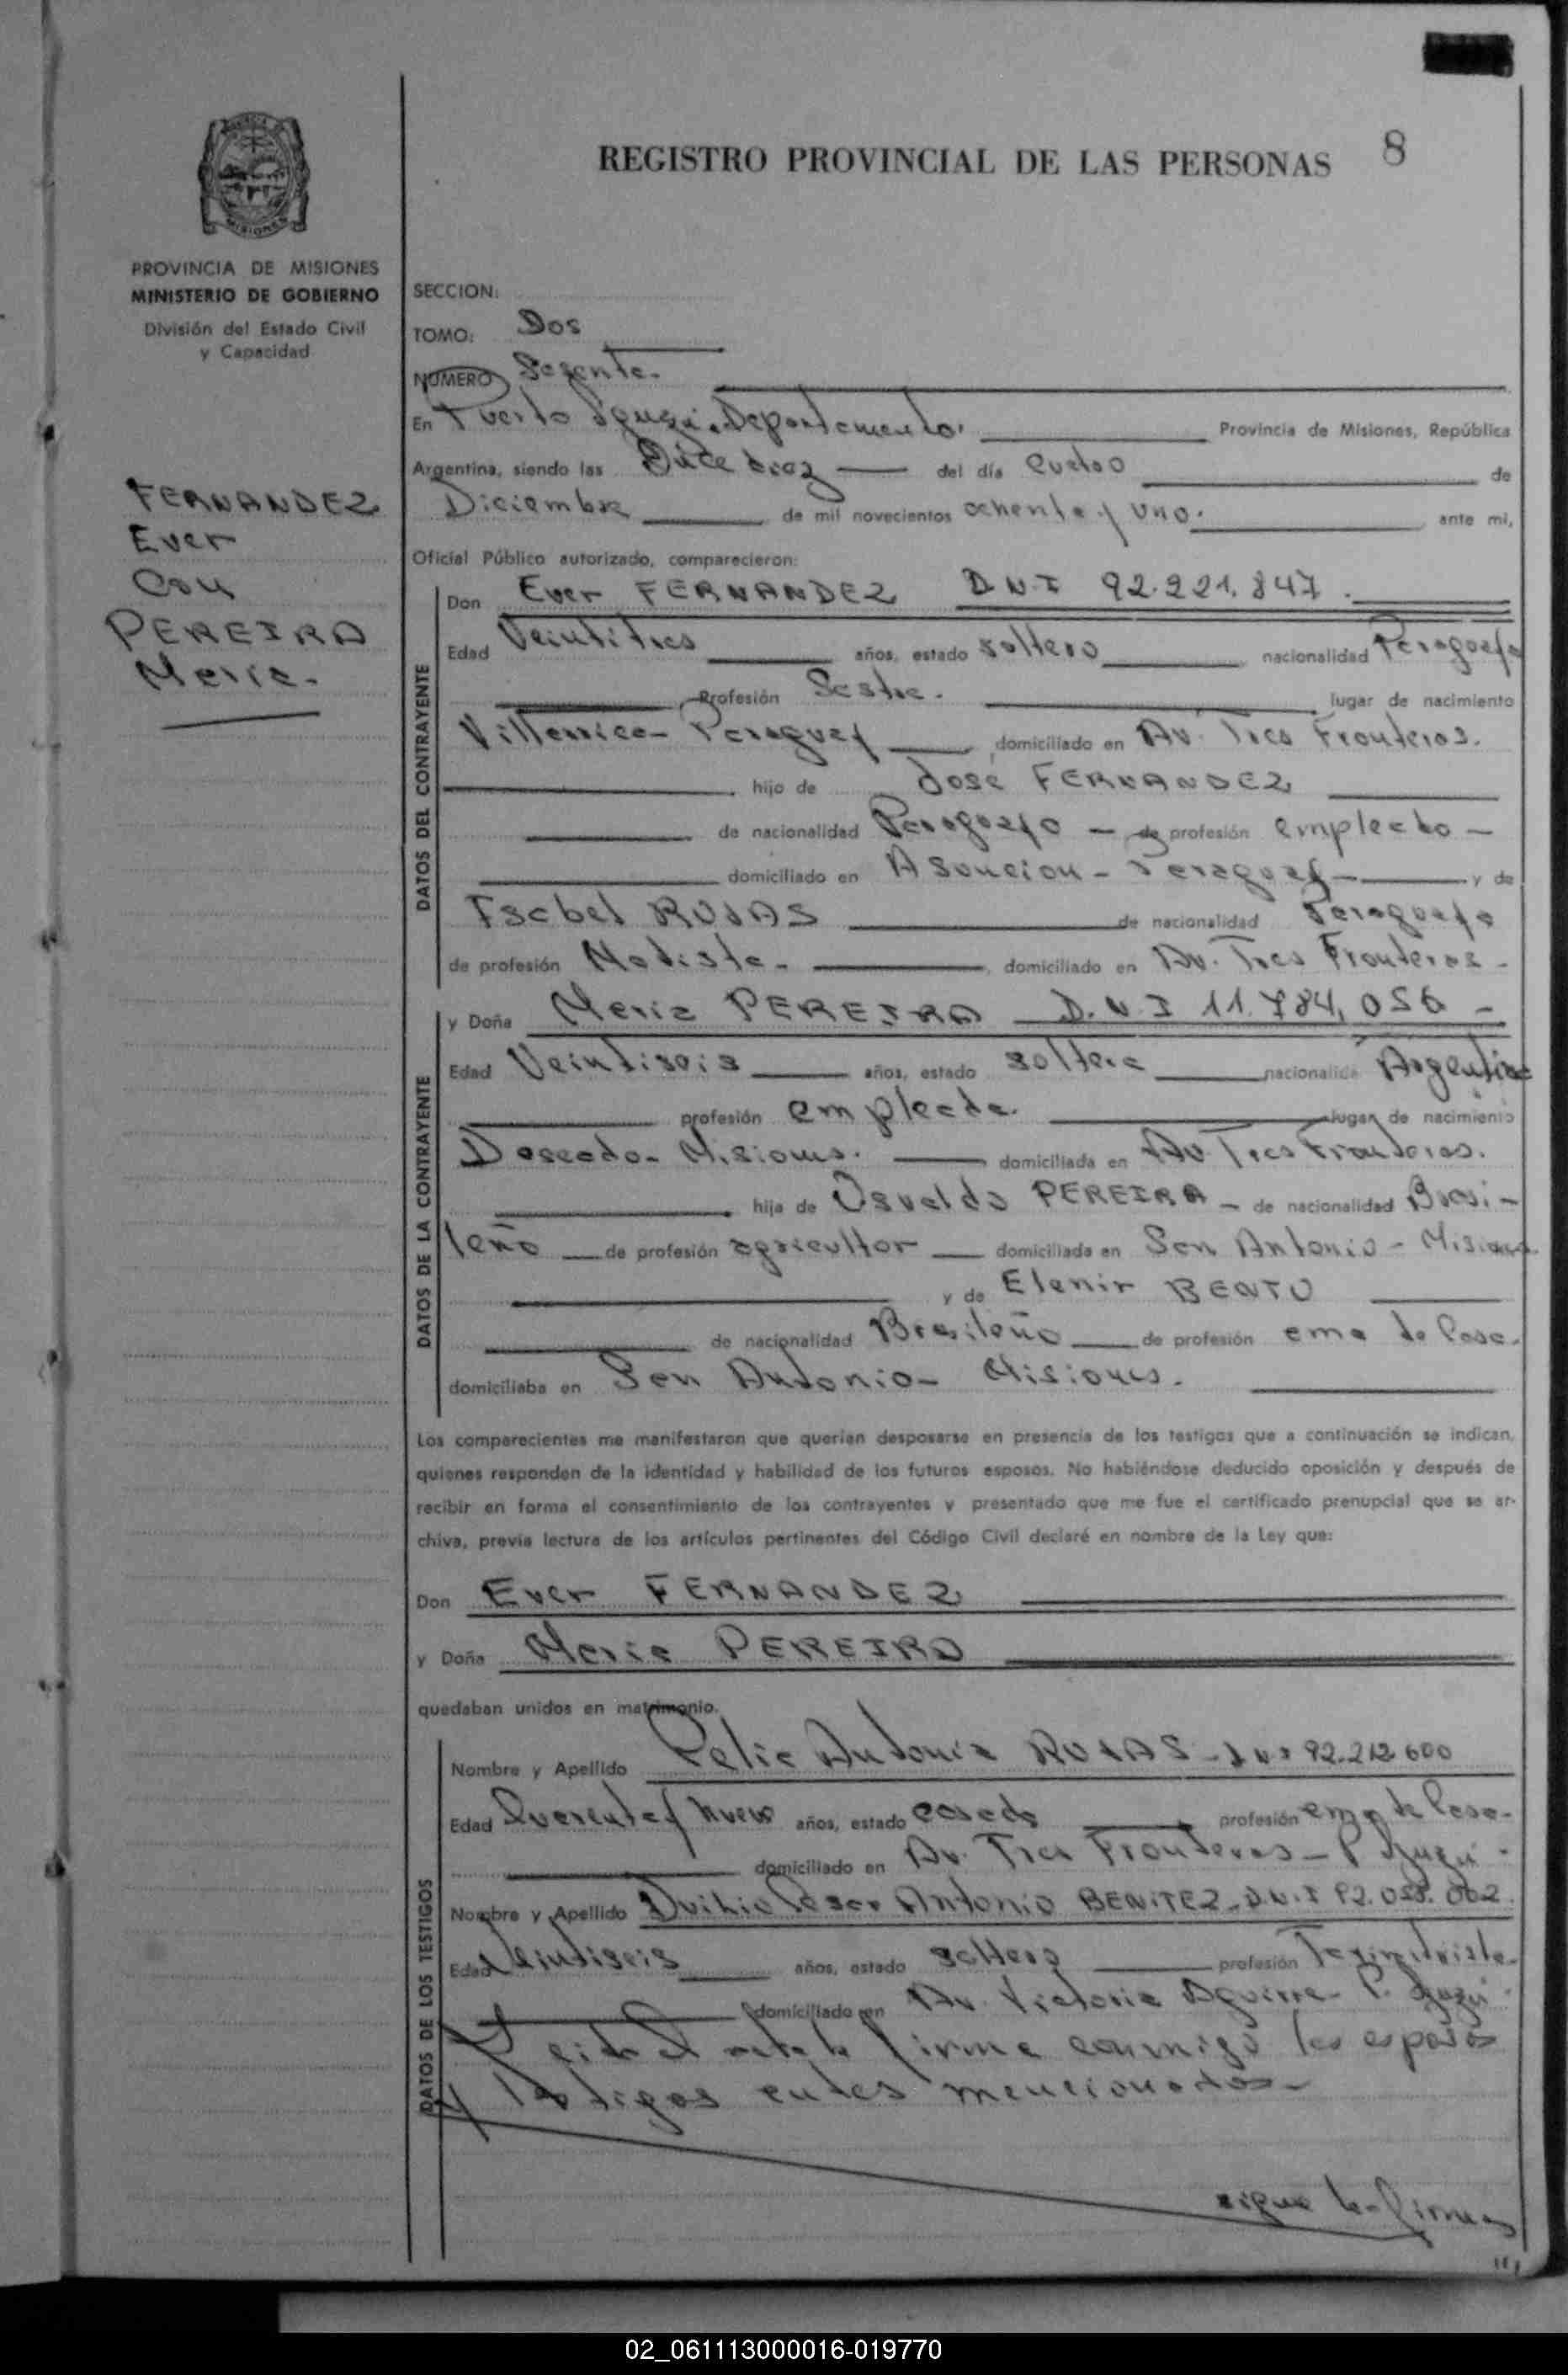 REGISTRO PROVINCIAL DE LAS PERSONAS 8
PROVINCIA DE MISIONES
MINISTERIO DE GOBIERNO
División del Estado Civil
y Capacidad
FERNANDEZ
Ever
Con
PEREIRA
Maria.
SECCION:
TOMO: Dos
NUMERO Sesenta.
En Puerto Iguazú. Departamento. Provincia de Misiones, República
Argentina, siendo las Doce diez del día cuatro de
Diciembre de mil novecientos ochenta y uno. ante mi,
Oficial Público autorizado, comparecieron:
DATOS DEL CONTRAYENTE
Don Ever FERNANDEZ D.N.I 92.221.847.
Edad Veintitres años, estado soltero nacionalidad Paraguaya
Profesión Sastre. lugar de nacimiento
Villarrica - Paraguay domiciliado en Av. Tres Fronteras.
hijo de José FERNANDEZ
de nacionalidad Paraguayo - de profesión empleado -
domiciliado en Asuncion - Paraguay - y de
Isabel ROJAS de nacionalidad Paraguaya
de profesión Modista - domiciliado en Av. Tres Fronteras -
DATOS DE LA CONTRAYENTE
y Doña Maria PEREIRA D.N.I 11.784.056 -
Edad Veintiseis años, estado soltera nacionalida Argentina
profesión empleada. lugar de nacimiento
Deseado - Misiones. domiciliada en Av. Tres Fronteras.
hija de Osvaldo PEREIRA - de nacionalidad Brasi-
leño de profesión agricultor domiciliada en San Antonio - Misiones
y de Elenir BENTO
de nacionalidad Brasileña de profesión ama de Casa.
domiciliaba en San Antonio - Misiones.
Los comparecientes me manifestaron que querían desposarse en presencia de los testigos que a continuación se indican,
quienes responden de la identidad y habilidad de los futuros esposos. No habiéndose deducido oposición y después de
recibir en forma el consentimiento de los contrayentes y presentado que me fue el certificado prenupcial que se ar-
chiva, previa lectura de los artículos pertinentes del Código Civil declaré en nombre de la Ley que:
Don Ever FERNANDEZ
y Doña Maria PEREIRA
quedaban unidos en matrimonio.
DATOS DE LOS TESTIGOS
Nombre y Apellido Antonia ROJAS - DNI 92.212.600
Edad Cuarenta y nueve años, estado casada profesión ama de Casa.
domiciliado en Av. Tres Fronteras - P. Iguazú.
Nombre y Apellido Duilio Cesar Antonio BENITEZ - D.N.I 92.028.002.
Edad Veintiseis años, estado soltero profesión
domiciliado en Av. Victoria Aguirre P. Iguazú.
Leida el acta la firma conmigo los esposos
y testigos antes mencionados -
sigue la firmas
///
02_061113000016-019770